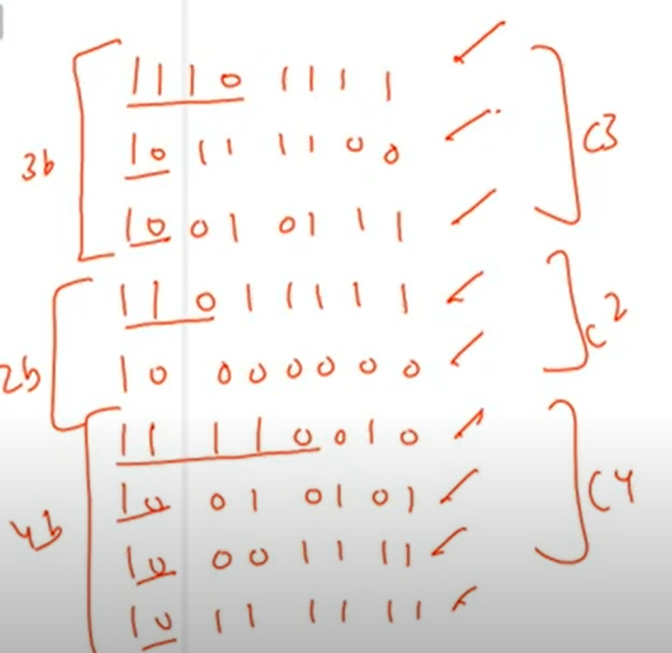 3b 1110 1111 C3
1011 1100
1001 0111
2b 1101 1111 C2
10 000000
4b 11 110010 C4
10 01 0101
10 00 11 11
10 11 11 11